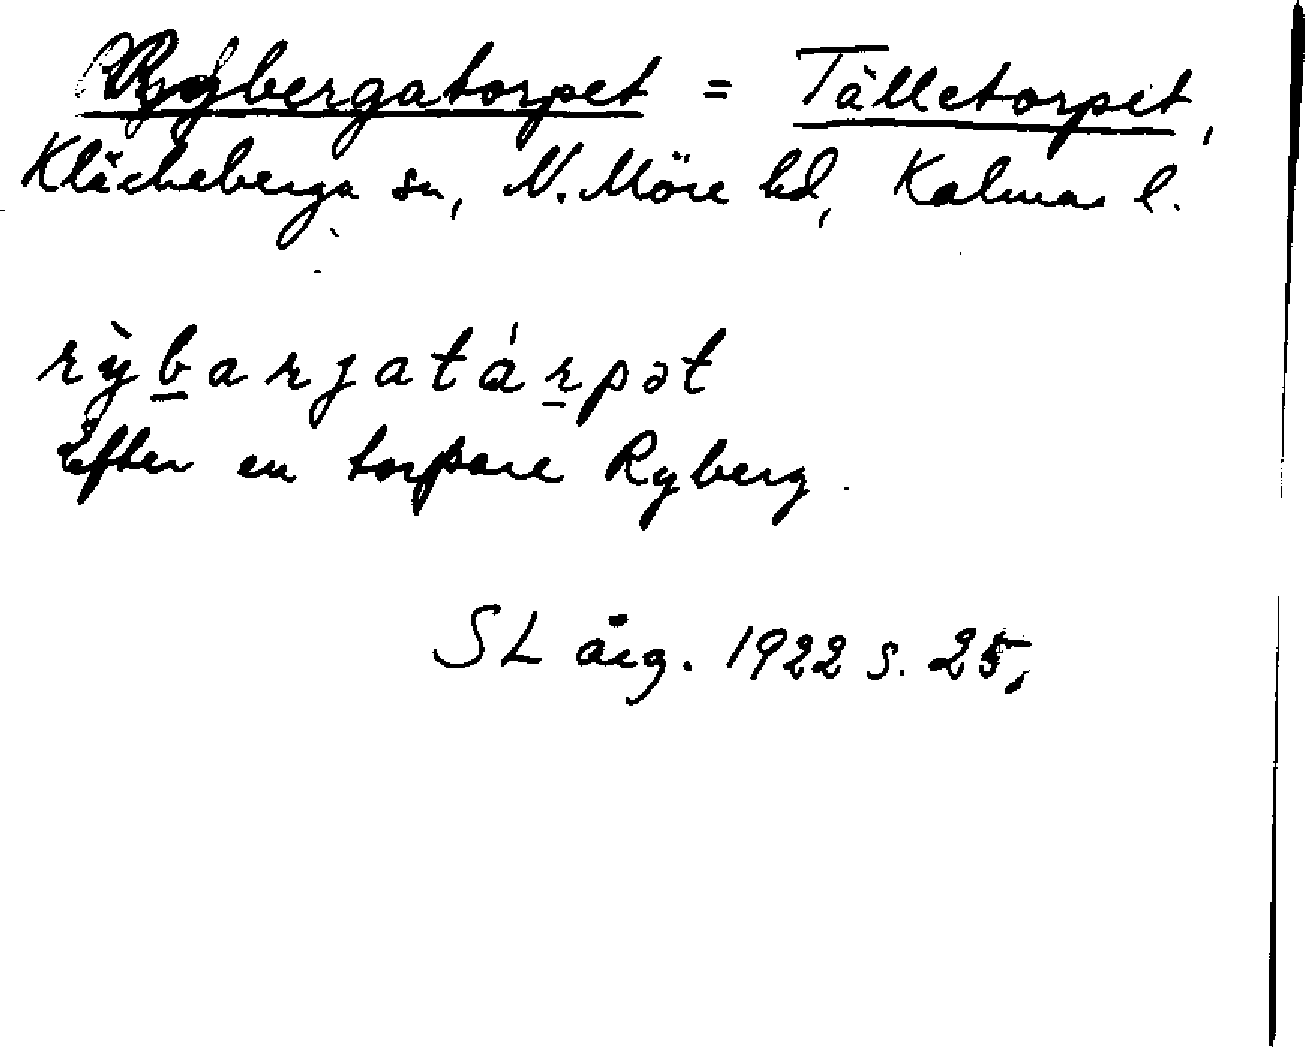 Rybergatorpet = Tålletorpet,
Kläckeberga sn, N. Möre hd, Kalmar l.
rỳbarjatárpət
Efter en torpare Ryberg.
SL årg. 1922 s. 25,